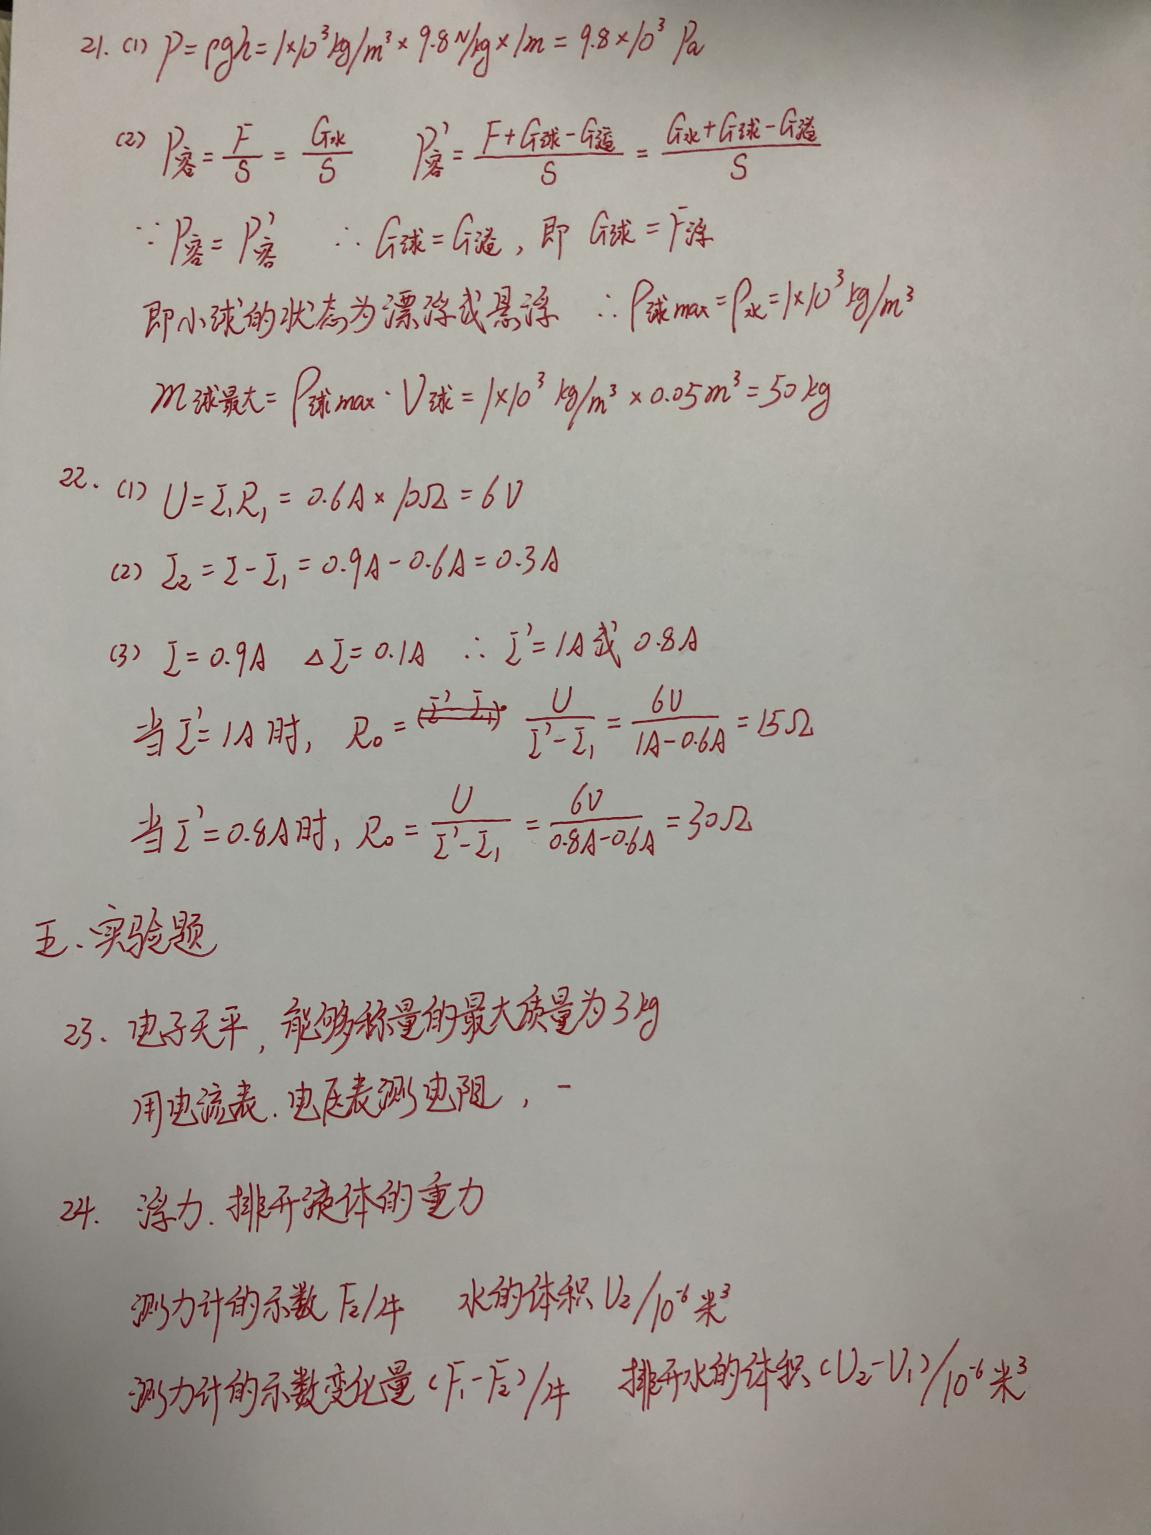 21. (1) P=ρgh=1×10³kg/m³×9.8N/kg×1m=9.8×10³ Pa
(2) P容=F/S=G水/S P容'=(F+G球-G溢)/S=(G水+G球-G溢)/S
∵P容=P容' ∴G球=G溢，即 G球=F浮
即小球的状态为漂浮或悬浮 ∴ρ球max=ρ水=1×10³kg/m³
m球最大=ρ球max·V球=1×10³ kg/m³×0.05m³=50kg
22. (1) U=I₁R₁=0.6A×10Ω=6V
(2) I₂=I-I₁=0.9A-0.6A=0.3A
(3) I=0.9A △I=0.1A ∴I'=1A或0.8A
当I'=1A时，R₀= U/(I'-I₁)=6V/(1A-0.6A)=15Ω
当I'=0.8A时，R₀=U/(I'-I₁)=6V/(0.8A-0.6A)=30Ω
五、实验题
23. 电子天平，能够称量的最大质量为3kg
用电流表、电压表测电阻，一
24. 浮力、排开液体的重力
测力计的示数 F₂/牛 水的体积V₂/10⁻⁶米³
测力计的示数变化量(F₁-F₂)/牛 排开水的体积(V₂-V₁)/10⁻⁶米³